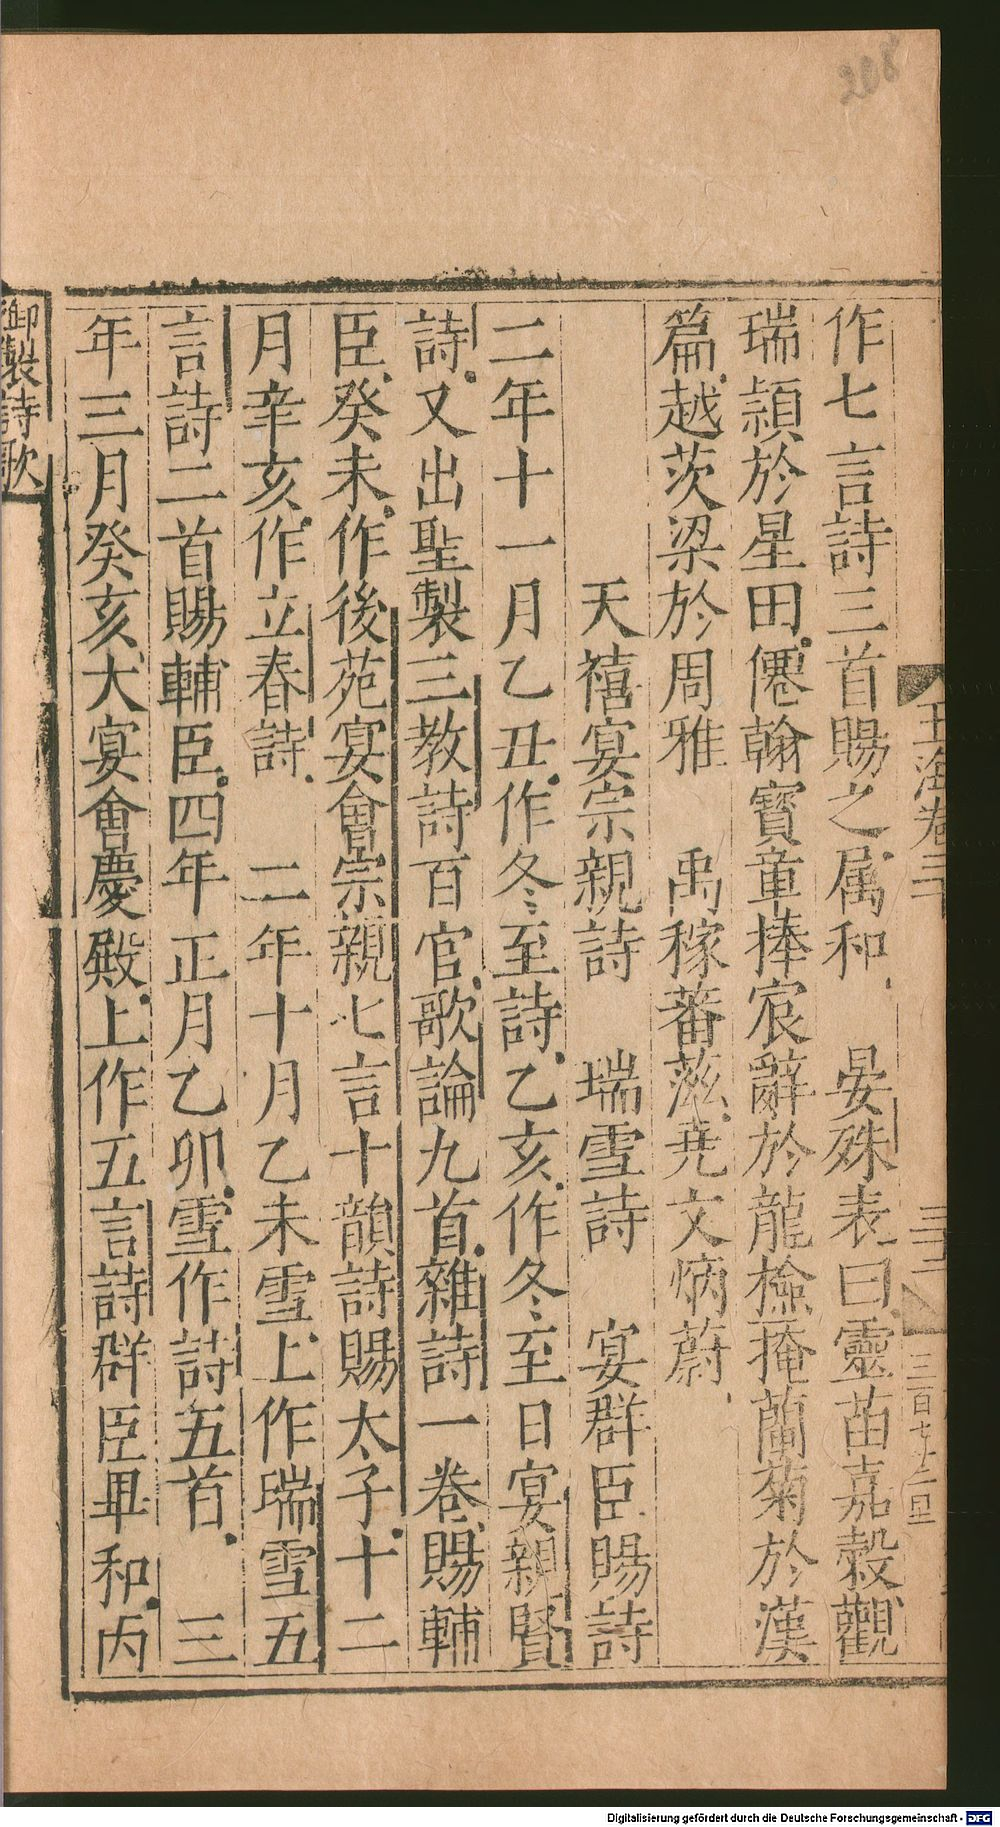 作七言詩三首賜之属和　晏殊表曰靈苗嘉穀觀
瑞頴於星田僊翰寳章捧宸辭於龍檢掩蘭菊於漢
篇越茨梁於周雅　禹稼蕃滋尭文炳蔚
天禧宴宗親詩　瑞雪詩　宴群臣賜詩
二年十一月乙丑作冬至詩乙亥作冬至日宴親賢
詩又出聖製三教詩百官歌論九首雜詩一卷賜輔
臣癸未作後苑宴會宗親七言十韻詩賜太子十二
月辛亥作立春詩　二年十月乙未雪上作瑞雪五
言詩二首賜輔臣四年正月乙卯雪作詩五首　三
年三月癸亥大宴會慶殿上作五言詩群臣畢和内
御製詩歌
玉海卷三十
三十二
三百七十二
Digitalisierung gefördert durch die Deutsche Forschungsgemeinschaft - DFG